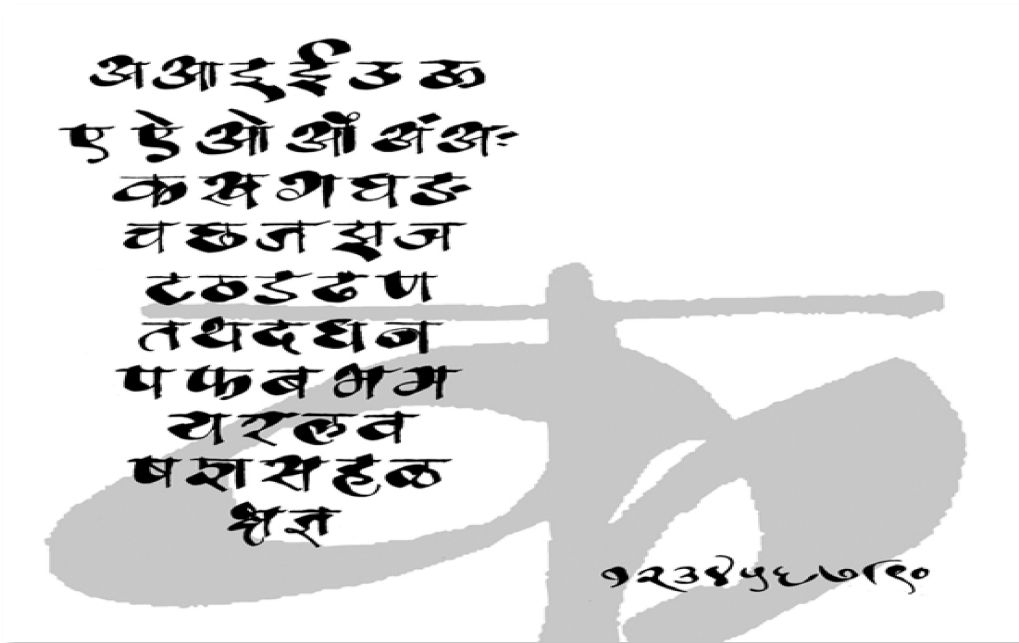 अ आ इ ई उ ऊ
ए ऐ ओ औ अं अः
क ख ग घ ङ
च छ ज झ ञ
ट ठ ड ढ ण
त थ द ध न
प फ ब भ म
य र ल व
ष श स ह ळ
क्ष ज्ञ
१२३४५६७८९०
क